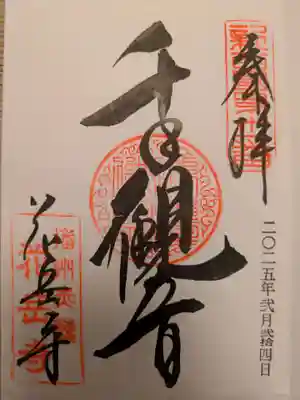 奉拝
二〇二五年弐月弐拾四日
千手觀音
花岳寺
播州赤穂
花岳寺